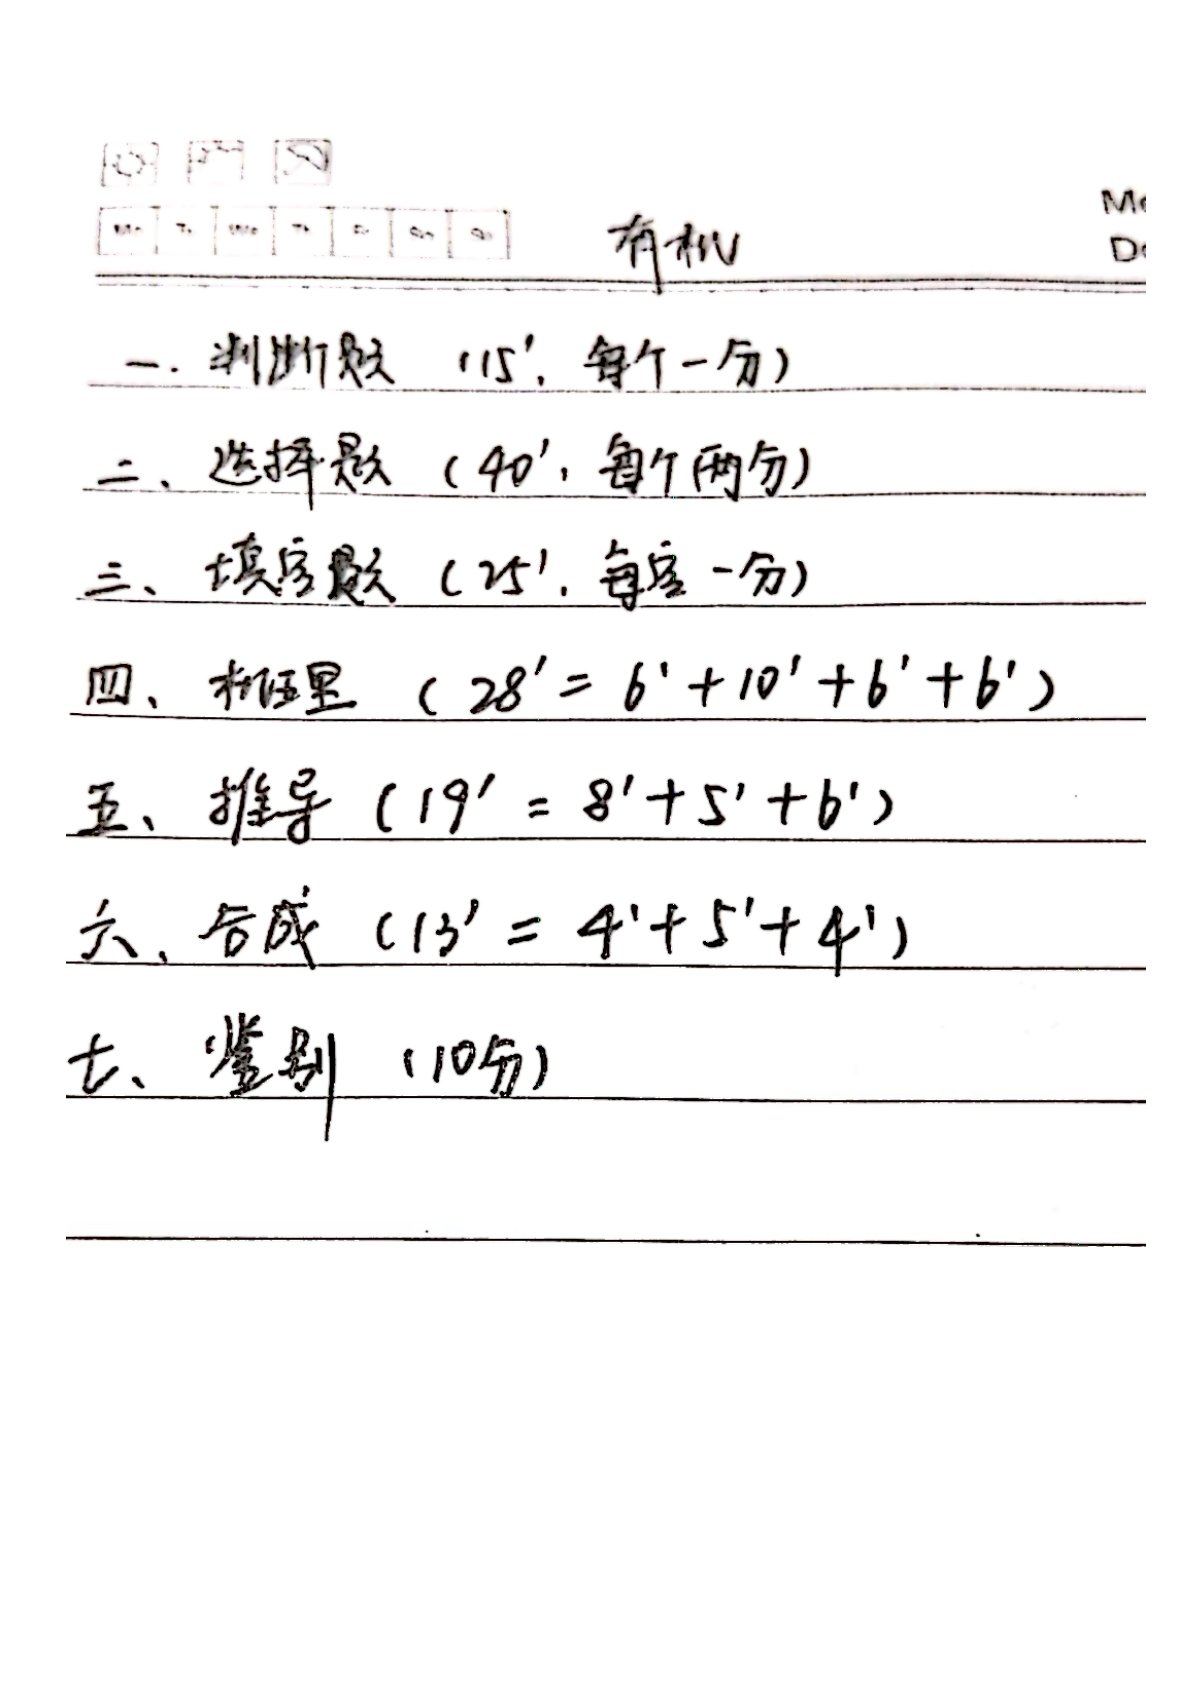 Mo Tu We Th Fr Sa Su
有机
Mo
Da
一. 判断题 (15', 每个一分)
二、选择题 (40', 每个两分)
三、填空题 (25', 每空一分)
四、机理 (28' = 6' + 10' + 6' + 6')
五、推导 (19' = 8' + 5' + 6')
六、合成 (13' = 4' + 5' + 4')
七、鉴别 (10分)